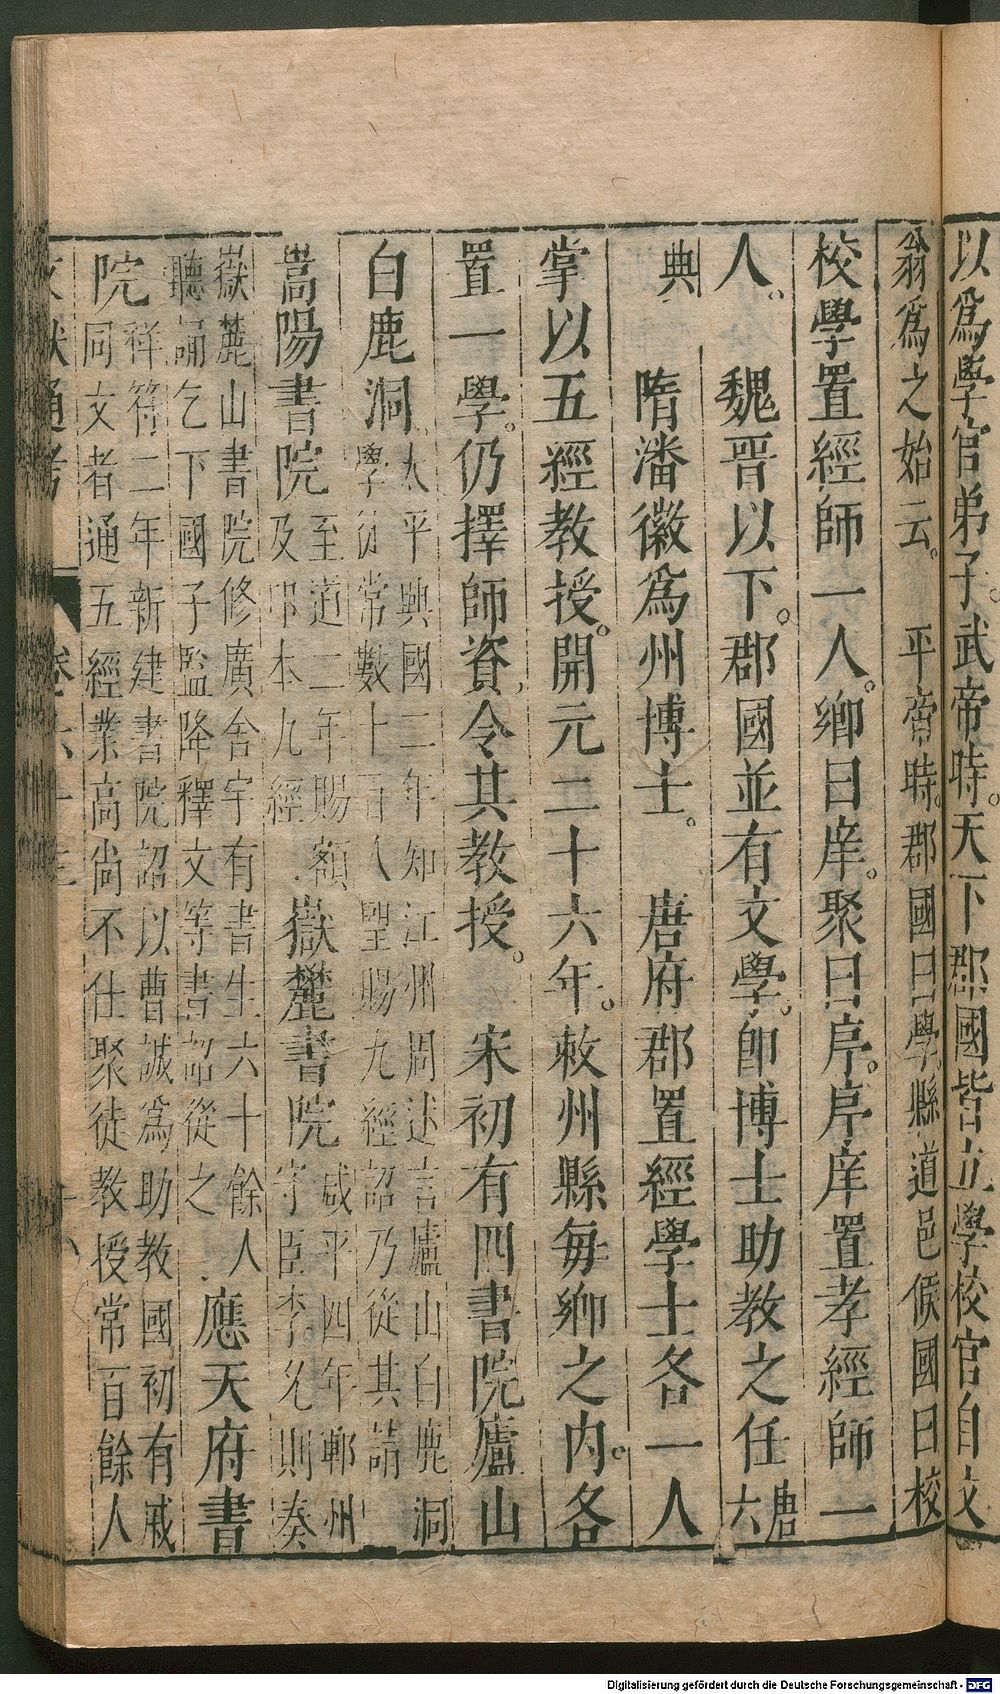 以為學官弟子。武帝時。天下郡國皆立學校官自文
翁為之始云。　平帝時。郡國曰學。縣道邑侯國曰校
校學置經師一人。鄉曰庠。聚曰序。序庠置孝經師一
人。　魏晉以下。郡國並有文學。卽博士助教之任唐六
典　隋潘徽為州博士。　唐府郡置經學士各一人
掌以五經教授。開元二十六年。敕州縣每鄉之內。各
置一學。仍擇師資，令其教授。　宋初有四書院廬山
白鹿洞
太平興國二年知江州周述言廬山白鹿洞
學徒常數十百人望賜九經詔乃從其請
嵩陽書院
至道二年賜額
及印本九經
嶽麓書院
咸平四年郴州
守臣李允則奏
嶽麓山書院修廣舍宇有書生六十餘人
聽誦乞下國子監降釋文等書詔從之
應天府書
院
祥符二年新建書院詔以曹誠為助教國初有戚
同文者通五經業高尚不仕聚徒教授常百餘人
文獻通考　卷六十三
Digitalisierung gefördert durch die Deutsche Forschungsgemeinschaft - DFG